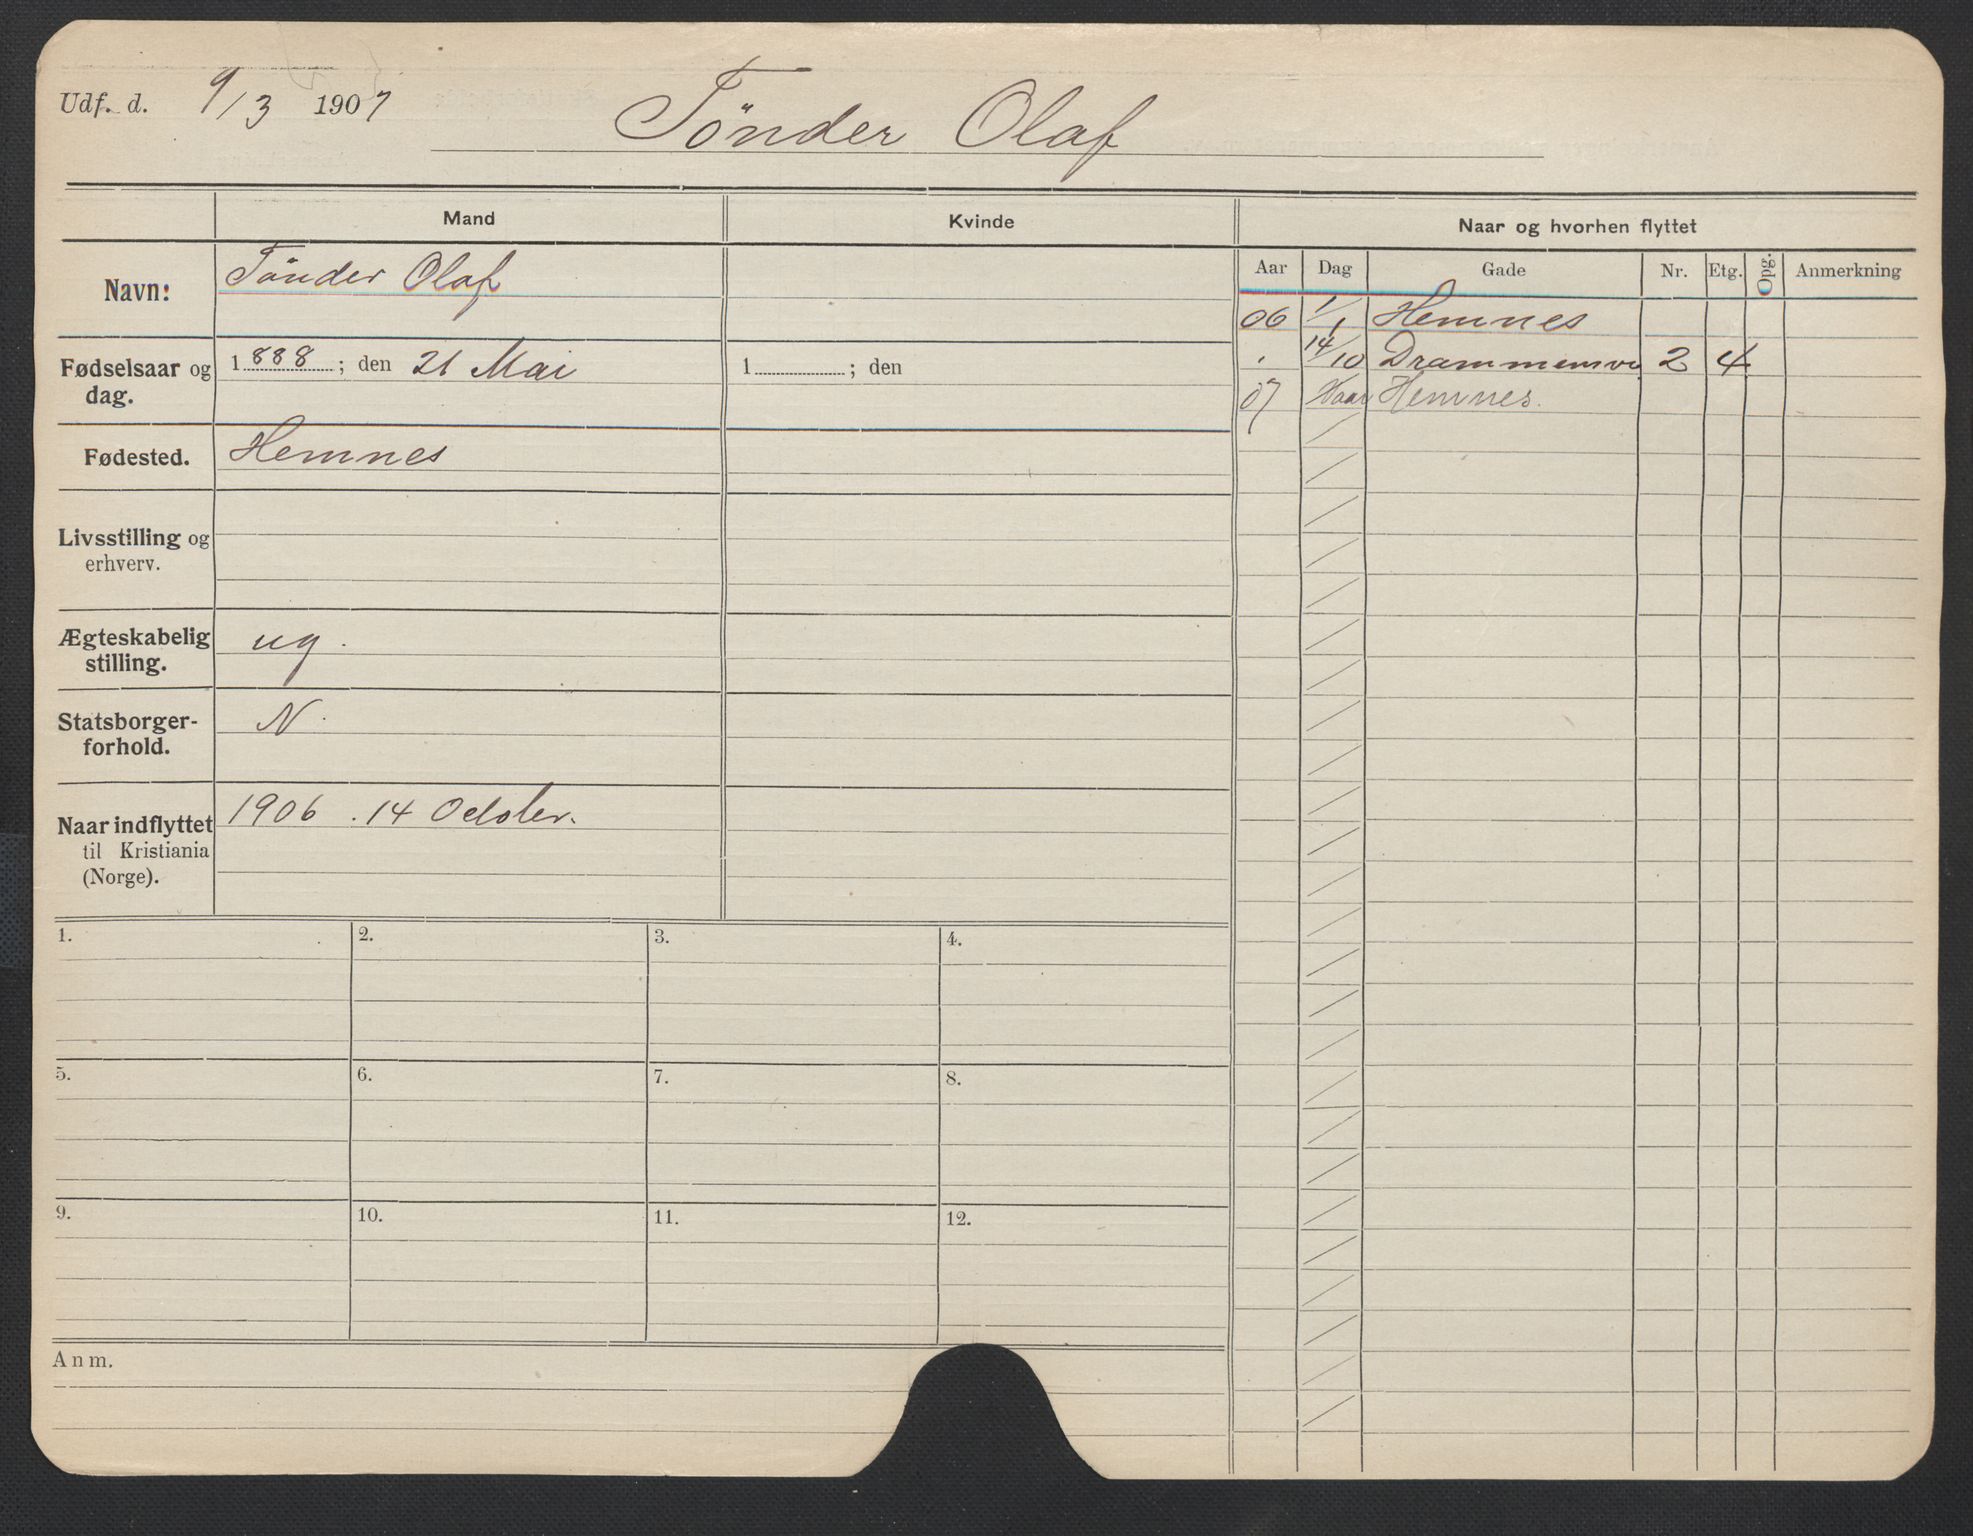 Udf. d. 9/3 1907
Tönder Olaf
Mand
Kvinde
Naar og hvorhen flyttet
Navn:
Tönder Olaf
Aar
Dag
Gade
Nr.
Etg.
Opg.
Anmerkning
06 1/1 Hemnes
" 14/10 Drammensv. 2 4
07 Vaar Hemnes.
Fødselsaar og
dag.
1888; den 21 Mai
1 ; den
Fødested.
Hemnes
Livsstilling og
erhverv.
Ægteskabelig
stilling.
ug.
Statsborger-
forhold.
N.
Naar indflyttet
til Kristiania
(Norge).
1906. 14 October.
1.
2.
3.
4.
5.
6.
7.
8.
9.
10.
11.
12.
Anm.